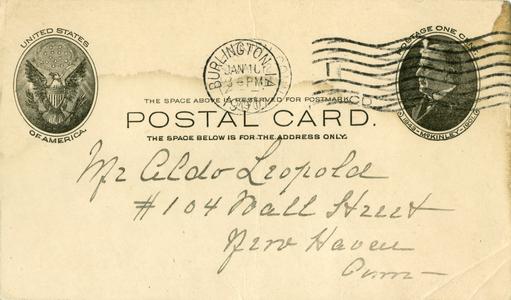 UNITED STATES
OF AMERICA.
BURLINGTON, IA
JAN 10
POSTAGE ONE CENT
McKINLEY
THE SPACE ABOVE IS RESERVED FOR POSTMARK.
POSTAL CARD.
THE SPACE BELOW IS FOR THE ADDRESS ONLY.
Mr Aldo Leopold
#104 Wall Street
New Haven
Conn